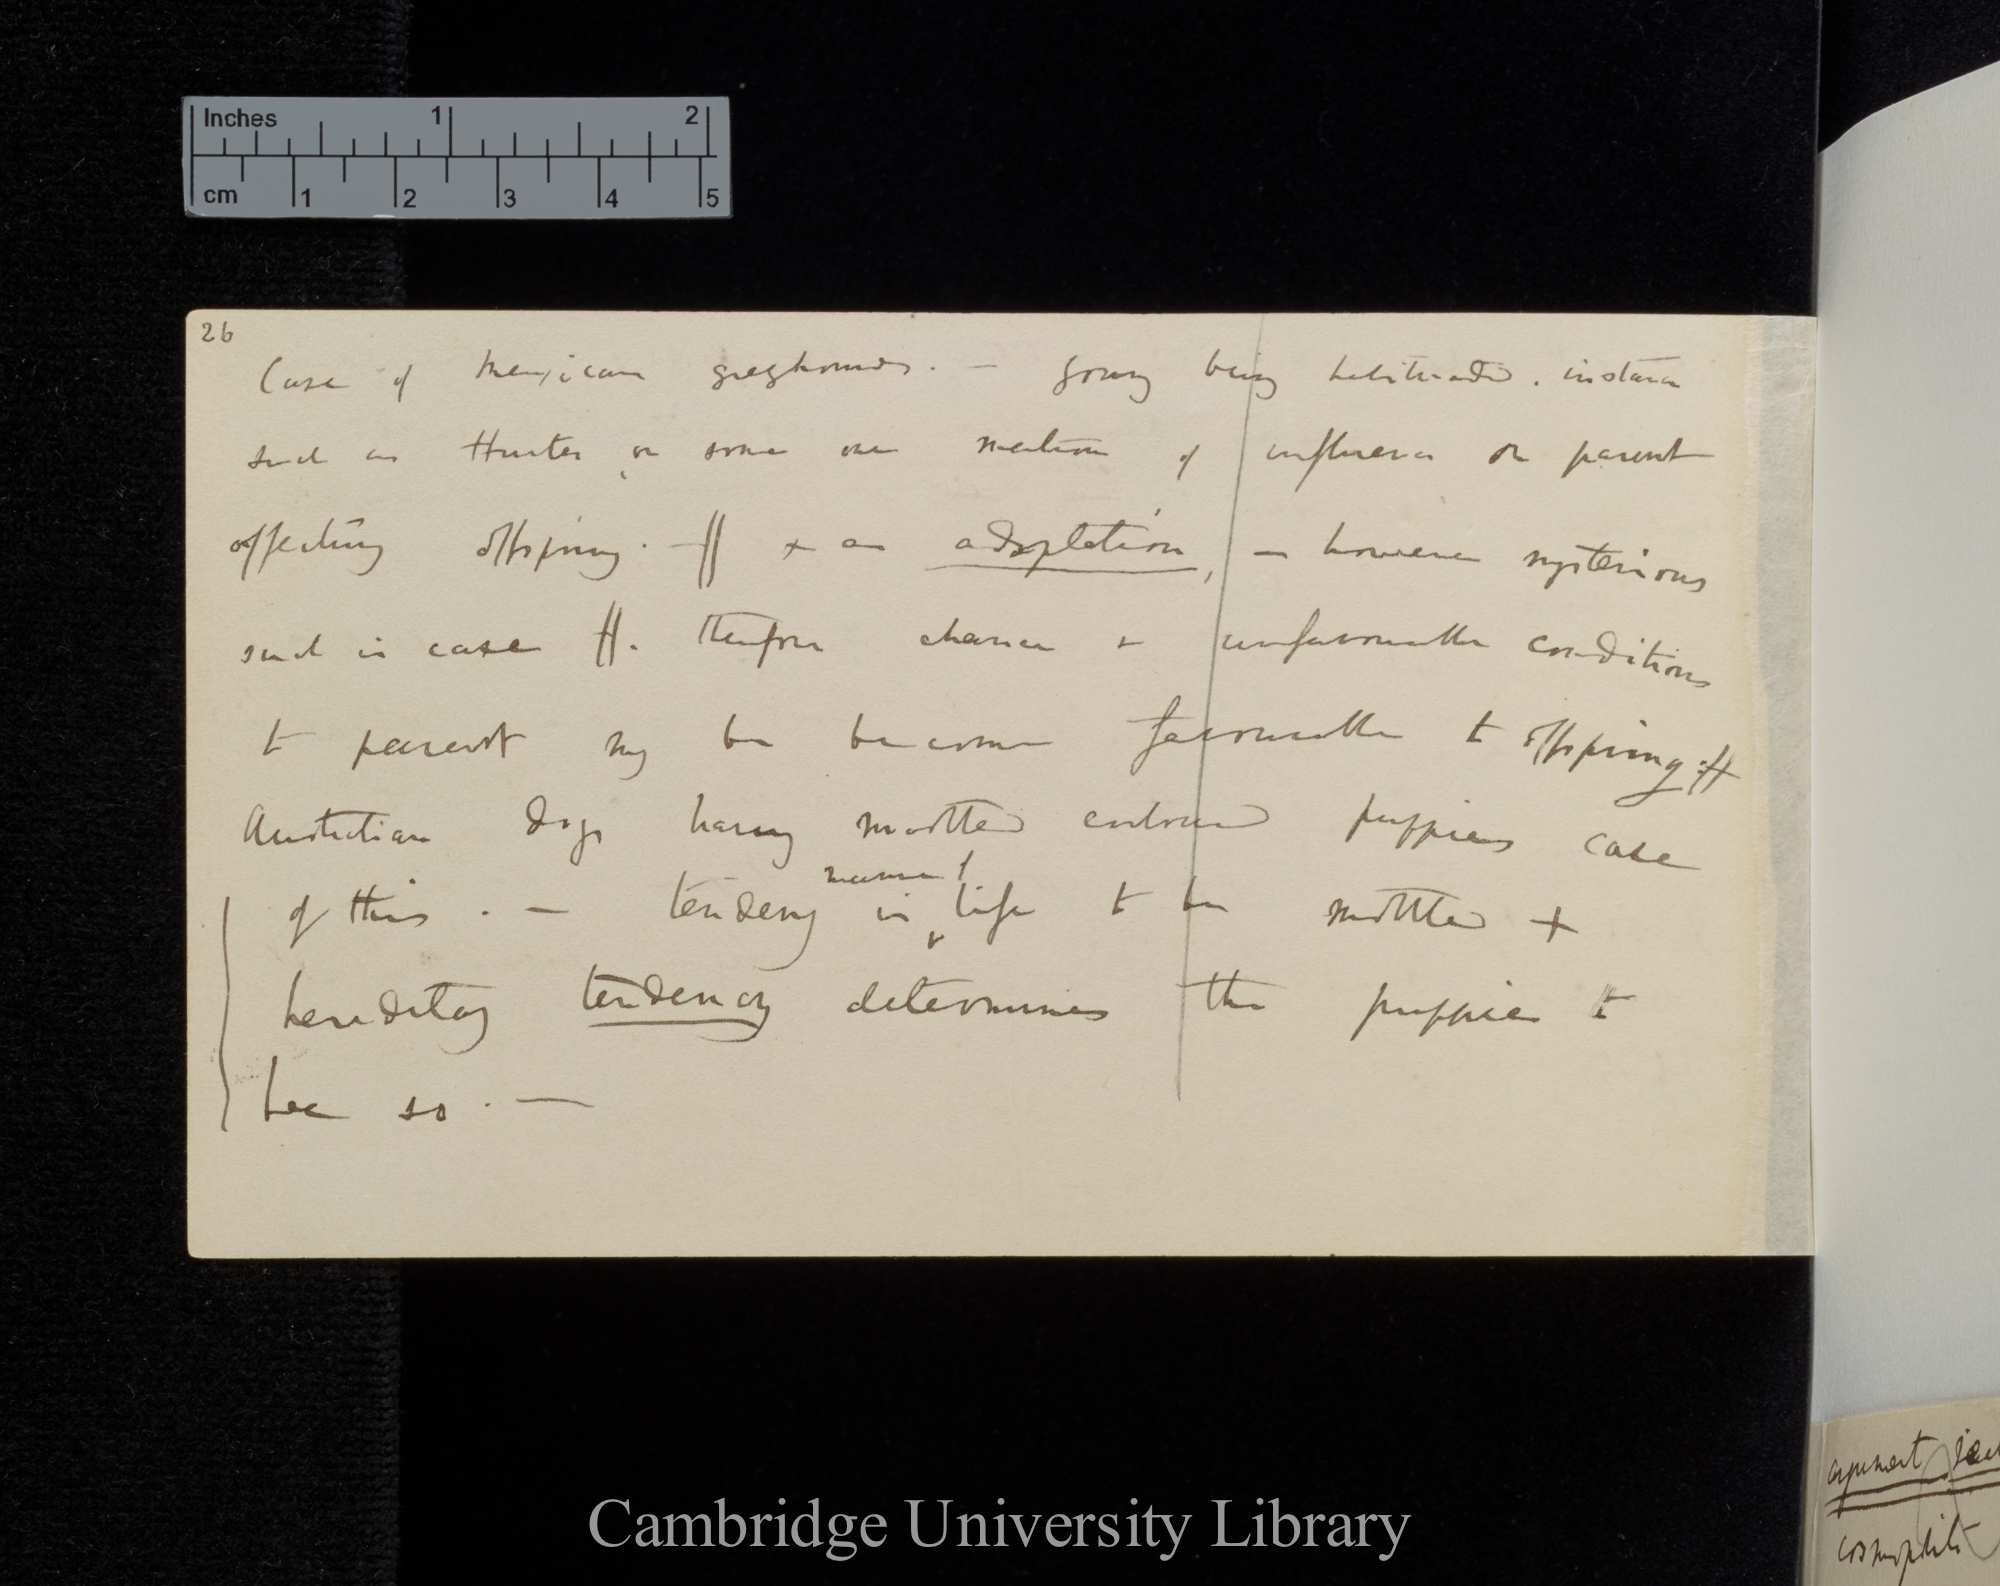 Inches 1 2
cm 1 2 3 4 5
26
Case of Mexican greyhounds. — young being habituated. instance
such as Hunter, or some one mention of influence on parent
affecting offspring. — ‖ + an adaptation, — however mysterious
such is case ‖. therefore chance + unfavourable conditions
to parent may be become favourable to offspring. ‖
Australian dogs having mottled coloured puppies case
of this. — tendency in manner of life to be mottled +
hereditary tendency determines the puppies to
be so. —
argument
cosmopolite
Cambridge University Library